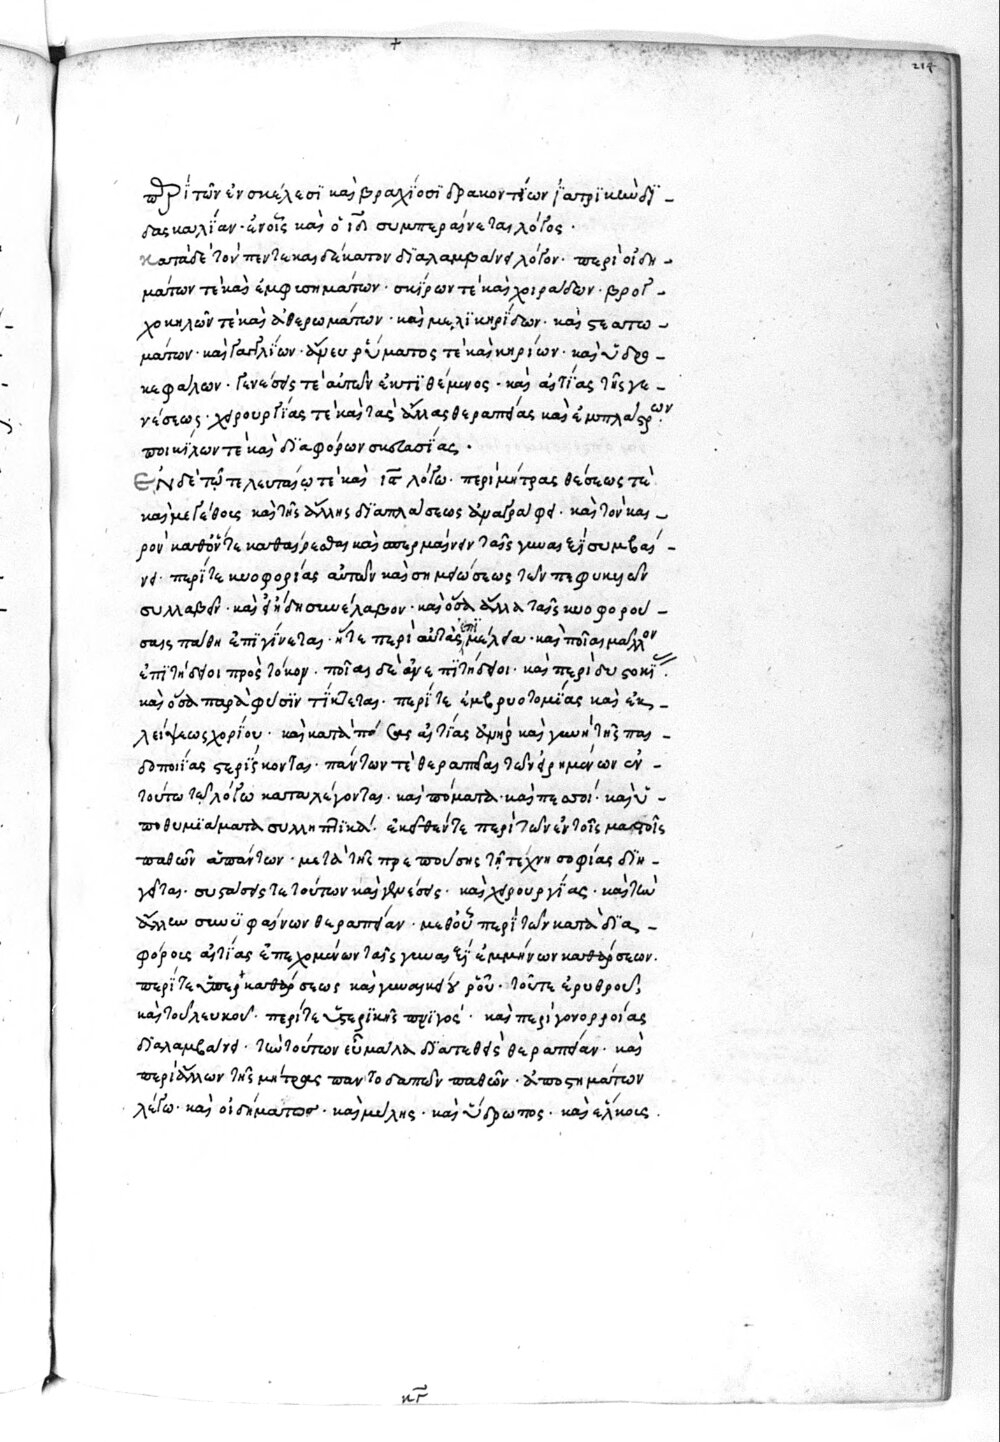 214
περὶ τῶν ἐν σκέλεσϊ καὶ βραχίοσϊ δρακοντίων ἰατρικὴν δϊ-
δασκαλίαν· ἐν οἷς καὶ ὁ ιδ συμπεραίνεται λόγος.
κατὰ δὲ τὸν πεντεκαιδέκατον δϊαλαμβάνει λόγον· περὶ οἰδη-
μάτων τὲ καὶ ἐμφυσημάτων· σκίρων τὲ καὶ χοιράδων· βρογ-
χοκηλῶν τὲ καὶ ἀθερωμάτων· καὶ μελικηρίδων· καὶ στεατω-
μάτων· καὶ γαγγλίων· ἀνευρύσματος τὲ καὶ κηρίων· καὶ ὑδρο-
κεφάλων· γενέσεις τὲ αὐτῶν ἐκτϊθέμενος· καὶ αἰτίας τῆς γε-
νέσεως· χειρουργίας τὲ καὶ τὰς ἄλλας θεραπείας καὶ ἐμπλάστρων
ποικίλων τὲ καὶ δϊαφόρων σκευασίας.
Ἐν δὲ τῷ τελευταίῳ τὲ καὶ ις λόγω· περὶ μήτρας θέσεως τὲ
καὶ μεγέθους καὶ τῆς ἄλλης δϊαπλάσεως ἀναγράφει· καὶ τὸν και-
ρὸν καθὅν τε καθαίρεσθαι καὶ σπερμαίνειν ταῖς γυναιξὶ συμβαί-
νει· περὶ τε κυοφορίας αὐτῶν καὶ σημειώσεως τῶν πεφυκυιῶν
συλλαβεῖν· καὶ ἤδη συνέλαβον· καὶ ὅσα ἄλλα ταῖς κυοφορού-
σαις πάθη ἐπϊγίνεται· ἥ τε περὶ αὐτὰς ἐπϊμέλεια· καὶ ποῖαι μᾶλλον
ἐπϊτήδειοι πρὸς τόκον· ποῖαι δὲ ἀνεπϊτήδειοι· καὶ περὶ δυστοκϊ
καὶ ὅσα παρὰ φύσϊν τΐκτεται· περί τε ἐμβρυοτομίας καὶ ἐκ-
λείψεως χορίου· καὶ κατὰ πόσας αἰτίας ἀνὴρ καὶ γυνὴ τῆς παι-
δοποιίας στερίσκονται· πάντων τὲ θεραπείας τῶν εἰρημένων ἐν
τούτω τῶ λόγω καταλέγονται· καὶ πόματα· καὶ πεσσοὶ· καὶ ὑ-
ποθυμϊάματα συλληπτϊκά· ἐκεῖθέν τε περὶ τῶν ἐν τοῖς μαστοῖς
παθῶν ἁπάντων· μετὰ τῆς πρεπούσης τῇ τέχνη σοφίας δϊη-
γεῖται· συστάσεις τε τούτων καὶ γενέσεις· καὶ χειρουργίας· καὶ τὴν
ἄλλην συνυφαίνων θεραπείαν· μεθ οὗ περὶ τῶν κατὰ δϊα-
φόρους αἰτίας ἐπεχομένων ταῖς γυναιξὶ ἐμμήνων καθάρσεων.
περΐ τε ὑπερκαθάρσεως καὶ γυναικείου ῥοῦ· τοῦ τε ἐρυθροῦ,
καὶ τοῦ λευκοῦ· περί τε ὑστερϊκῆς πνιγός· καὶ περὶ γονορροίας
δϊαλαμβάνει· τὴν τούτων εὖ μάλα δϊατεθεὶς θεραπείαν· καὶ
περὶ ἄλλων τῆς μήτρας παντοδαπῶν παθῶν· ἀποστημάτων
λέγω· καὶ οἰδήματος· καὶ μύλης· καὶ ὕδρωπος· καὶ ἕλκους.
κγ